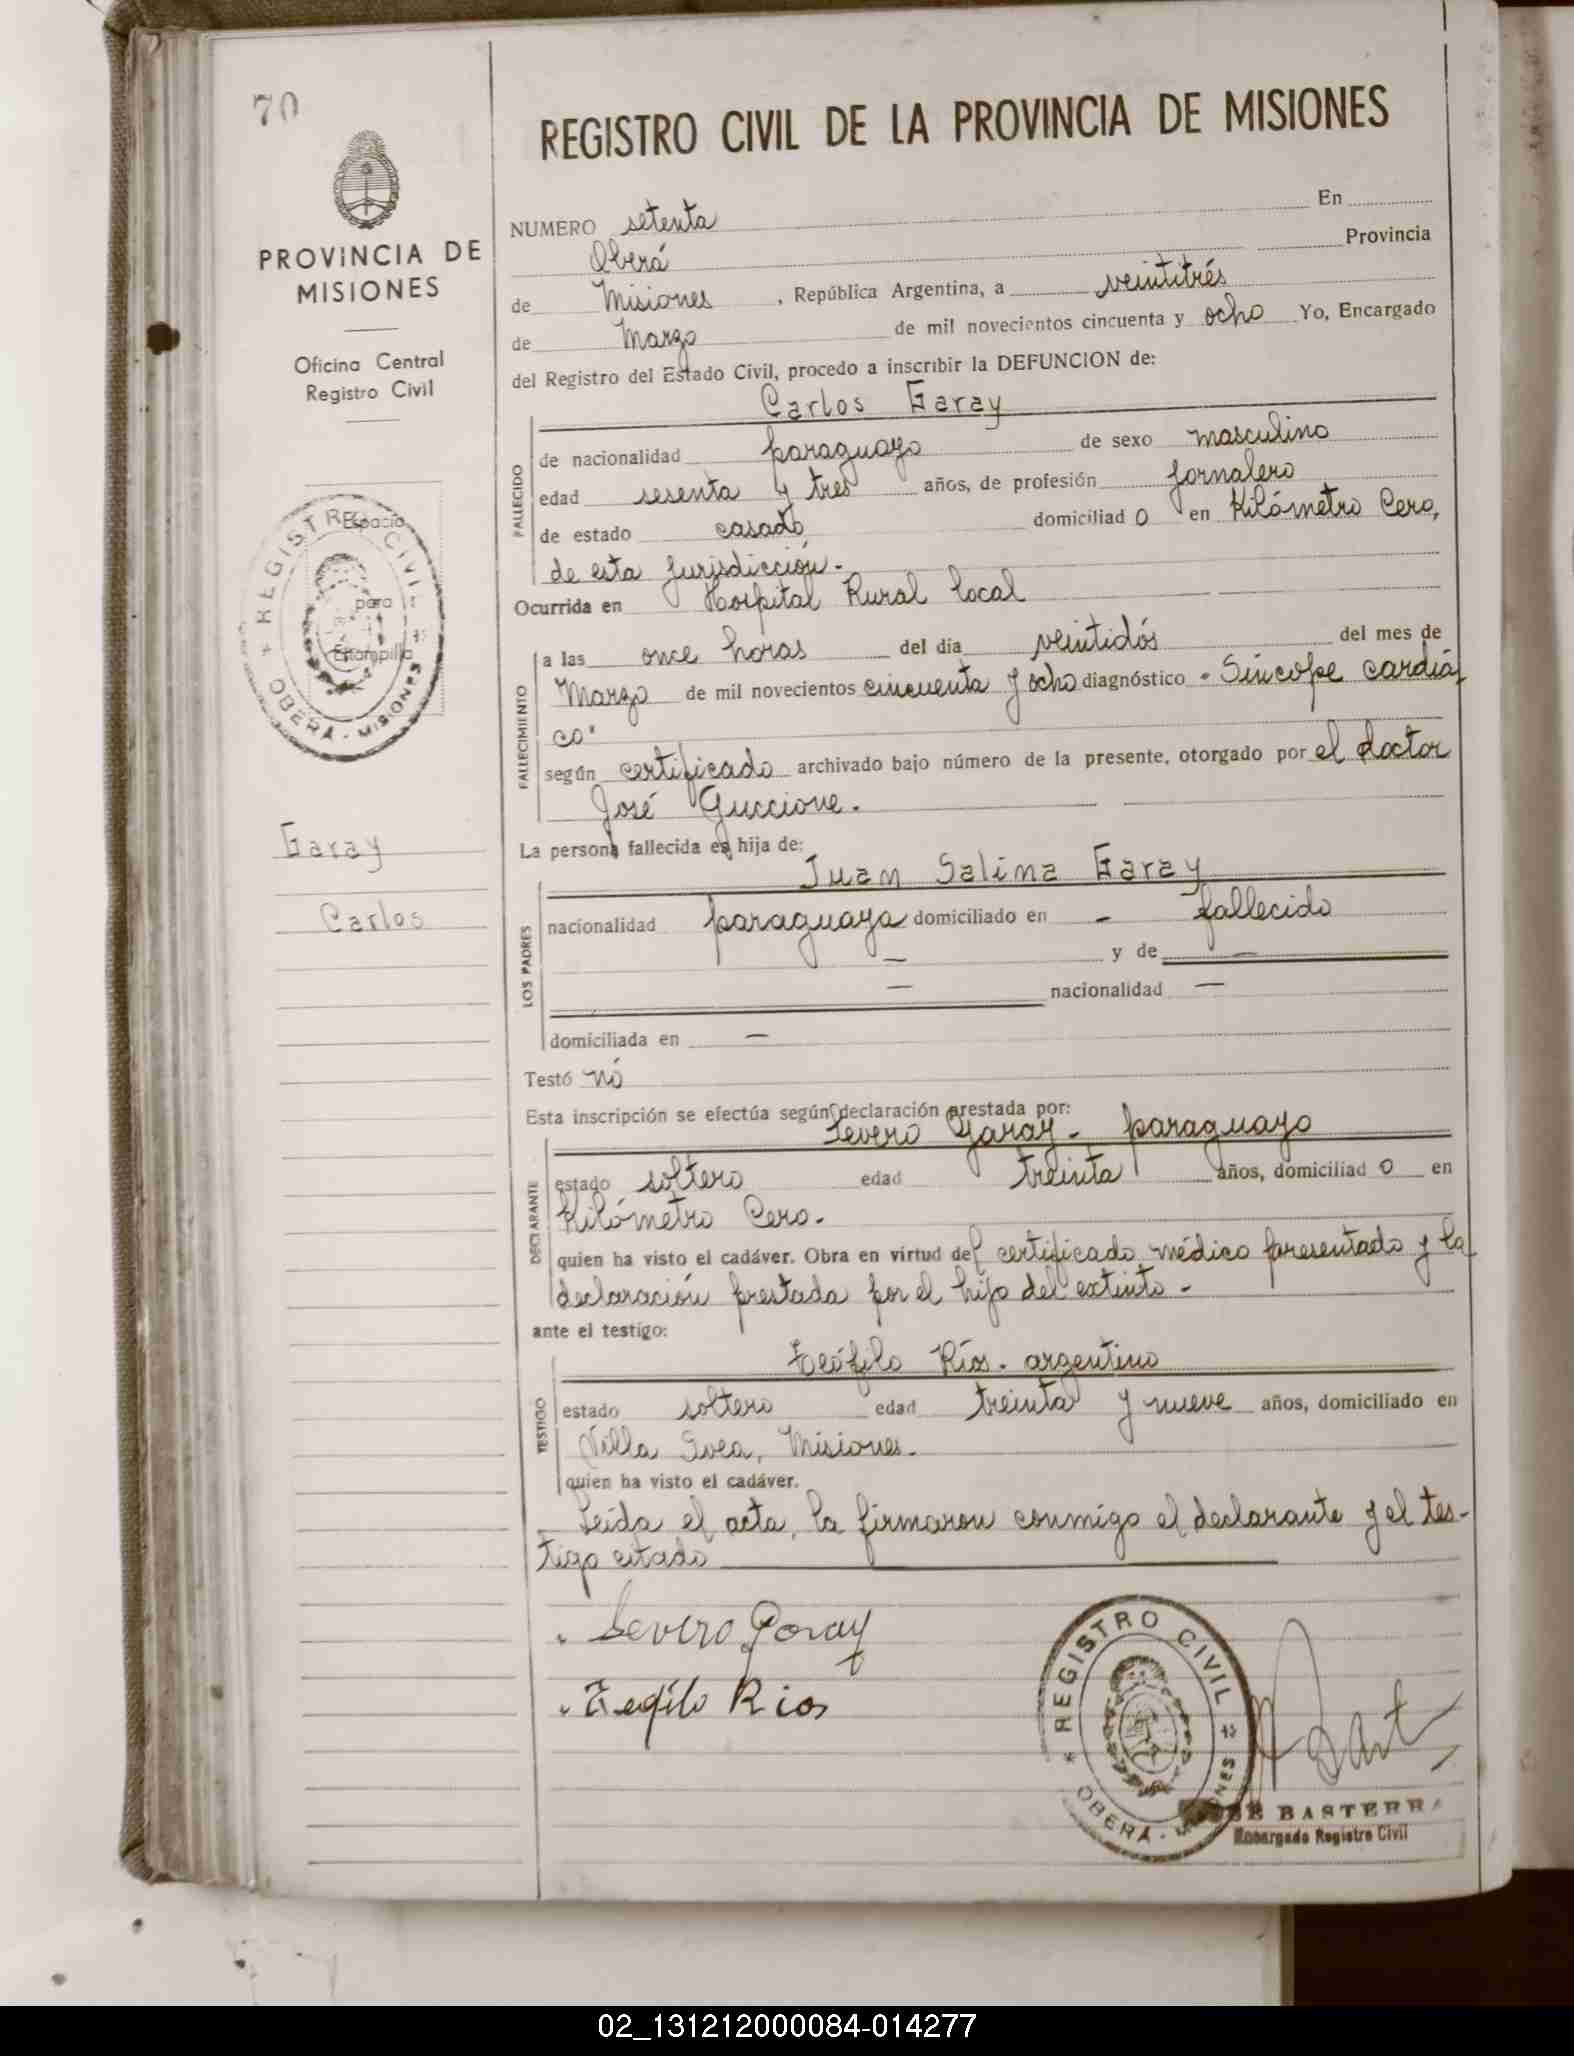 70
PROVINCIA DE
MISIONES
Oficina Central
Registro Civil
REGISTRO CIVIL
Espacio
para
Estampilla
OBERÁ - MISIONES
Garay
Carlos
REGISTRO CIVIL DE LA PROVINCIA DE MISIONES
NUMERO setenta En
Oberá Provincia
de Misiones, República Argentina, a veintitrés
de Marzo de mil novecientos cincuenta y ocho Yo, Encargado
del Registro del Estado Civil, procedo a inscribir la DEFUNCION de:
Carlos Garay
FALLECIDO
de nacionalidad paraguayo de sexo masculino
edad sesenta y tres años, de profesión jornalero
de estado casado domiciliado en Kilómetro Cero,
de esta jurisdicción.-
Ocurrida en Hospital Rural local
FALLECIMIENTO
a las once horas del día veintidós del mes de
Marzo de mil novecientos cincuenta y ocho diagnóstico "Síncope cardía-
co"
según certificado archivado bajo número de la presente, otorgado por el doctor
José Guccione.
La persona fallecida es hija de:
Juan Salina Garay
LOS PADRES
nacionalidad paraguaya domiciliado en - fallecido
— y de —
— nacionalidad —
domiciliada en —
Testó nó
Esta inscripción se efectúa según declaración prestada por:
Severo Garay - paraguayo
DECLARANTE
estado soltero edad treinta años, domiciliado en
Kilómetro Cero.
quien ha visto el cadáver. Obra en virtud del certificado médico presentado y la
declaración prestada por el hijo del extinto -
ante el testigo:
Teófilo Ríos. argentino
TESTIGO
estado soltero edad treinta y nueve años, domiciliado en
Villa Svea, Misiones.
quien ha visto el cadáver.
Leída el acta, la firmaron conmigo el declarante y el tes-
tigo citado
Severo Garay
Teofilo Rios
REGISTRO CIVIL
OBERÁ - MISIONES
BASTERRA
Encargado Registro Civil
02_131212000084-014277